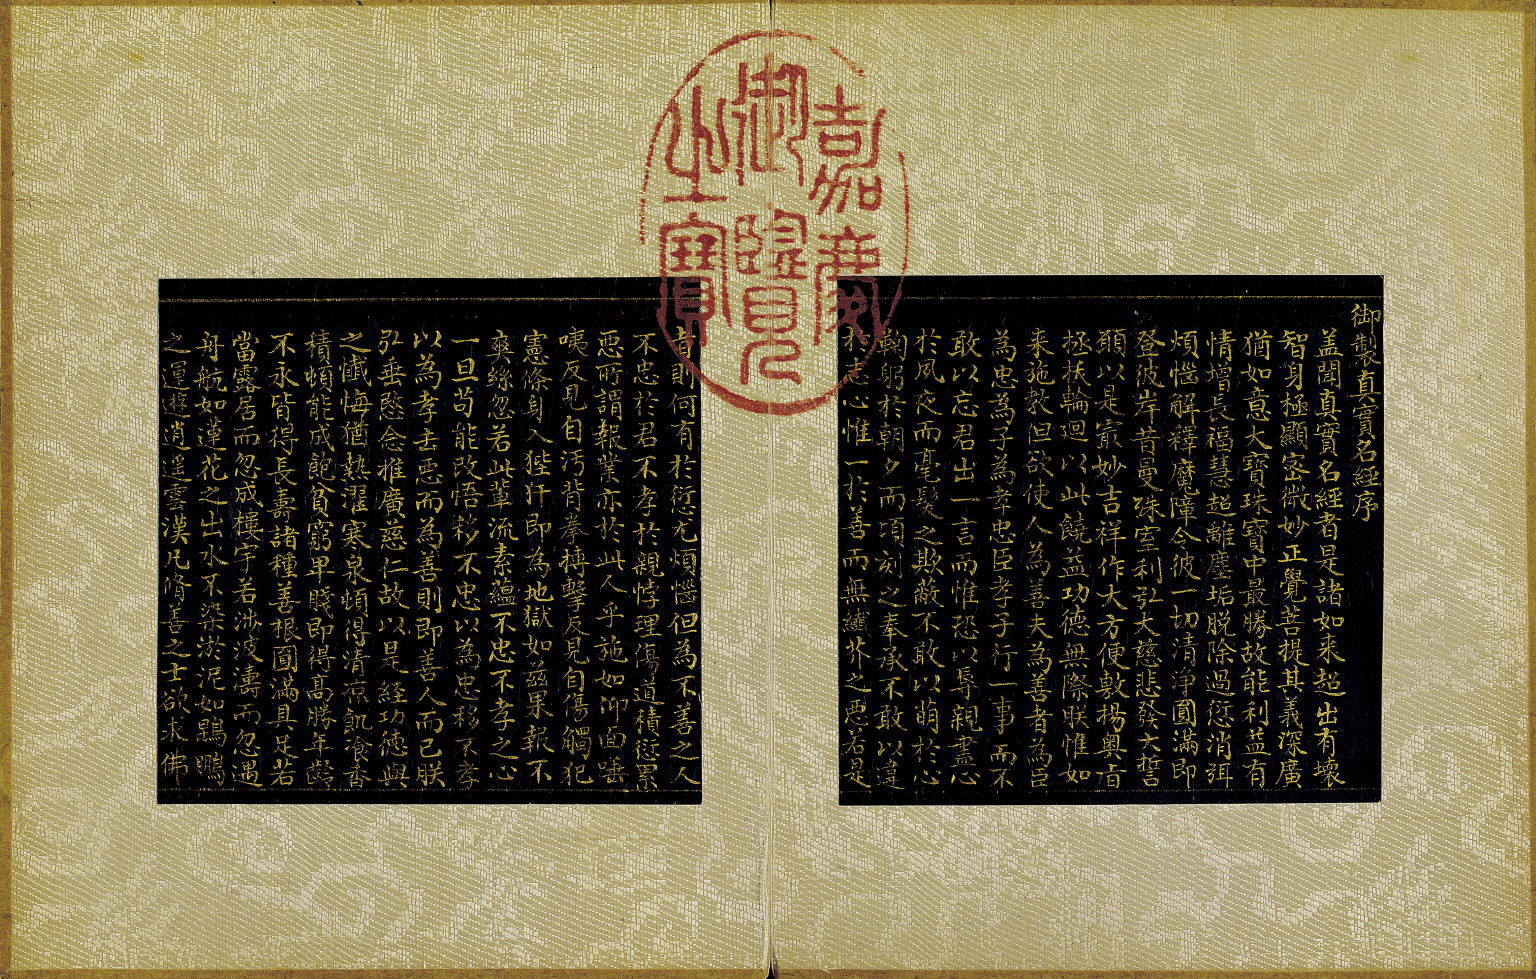 御製真實名經序
蓋聞真實名經者是諸如来超出有壞
智身極顯密微妙正覺菩提其義深廣
猶如意大寶珠寶中最勝故能利益有
情增長福慧超離塵垢脱除過愆消弭
煩惱解釋魔障令彼一切清淨圓滿即
登彼岸昔曼殊室利弘大慈悲發大誓
願以是㝡妙吉祥作大方便敷揚奧旨
拯扶輪迴以此饒益功德無際朕惟如
来施教但欲使人為善夫為善者為臣
為忠為子為孝忠臣孝子行一事而不
敢以忘君出一言而惟恐以辱親盡心
於夙夜而毫髮之欺蔽不敢以萌於心
鞠躬於朝夕而頃刻之奉承不敢以違
於志心惟一於善而無纖芥之惡若是
者則何有於愆尤煩惱但為不善之人
不忠於君不孝於親悖理傷道積愆累
惡所謂報業亦於此人乎施如仰面唾
咦反見自汚背拳摶擊反見自傷觸犯
憲條身入狴犴即為地獄如茲果報不
爽絲忽若此輩流素蘊不忠不孝之心
一旦苟能改悟移不忠以為忠移不孝
以為孝去惡而為善則即善人而已朕
弘垂愍念推廣慈仁故以是經功徳與
之懺悔猶熱濯寒泉頓得清凉飢飡香
積頓能成飽貧窮卑賤即得高勝年齡
不永皆得長壽諸種善根圓滿具足若
當露居而忽成樓宇若涉波濤而忽遇
舟航如蓮花之出水不染淤泥如鵾鵬
之運遊逍遥雲漢凡脩善之士欲求佛
嘉慶
御覽
之寶